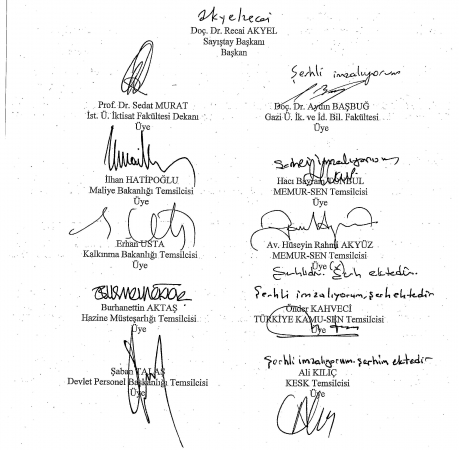 Doç. Dr. Recai AKYEL
Sayıştay Başkanı
Başkan
Prof. Dr. Sedat MURAT
İst. Ü. İktisat Fakültesi Dekanı
Üye
Şerhli imzalıyorum
Doç. Dr. Aydın BAŞBUĞ
Gazi Ü. İk. ve İd. Bil. Fakültesi
Üye
İlhan HATİPOĞLU
Maliye Bakanlığı Temsilcisi
Üye
Hacı Bayram TONBUL
MEMUR-SEN Temsilcisi
Üye
Erhan USTA
Kalkınma Bakanlığı Temsilcisi
Üye
Av. Hüseyin Rahmi AKYÜZ
MEMUR-SEN Temsilcisi
Üye
Şerh ektedir.
Burhanettin AKTAŞ
Hazine Müsteşarlığı Temsilcisi
Üye
Şerhli imzalıyorum, şerh ektedir
Önder KAHVECİ
TÜRKİYE KAMU-SEN Temsilcisi
Üye
Şaban TALAŞ
Devlet Personel Başkanlığı Temsilcisi
Üye
Şerhli imzalıyorum. şerhim ektedir
Ali KILIÇ
KESK Temsilcisi
Üye